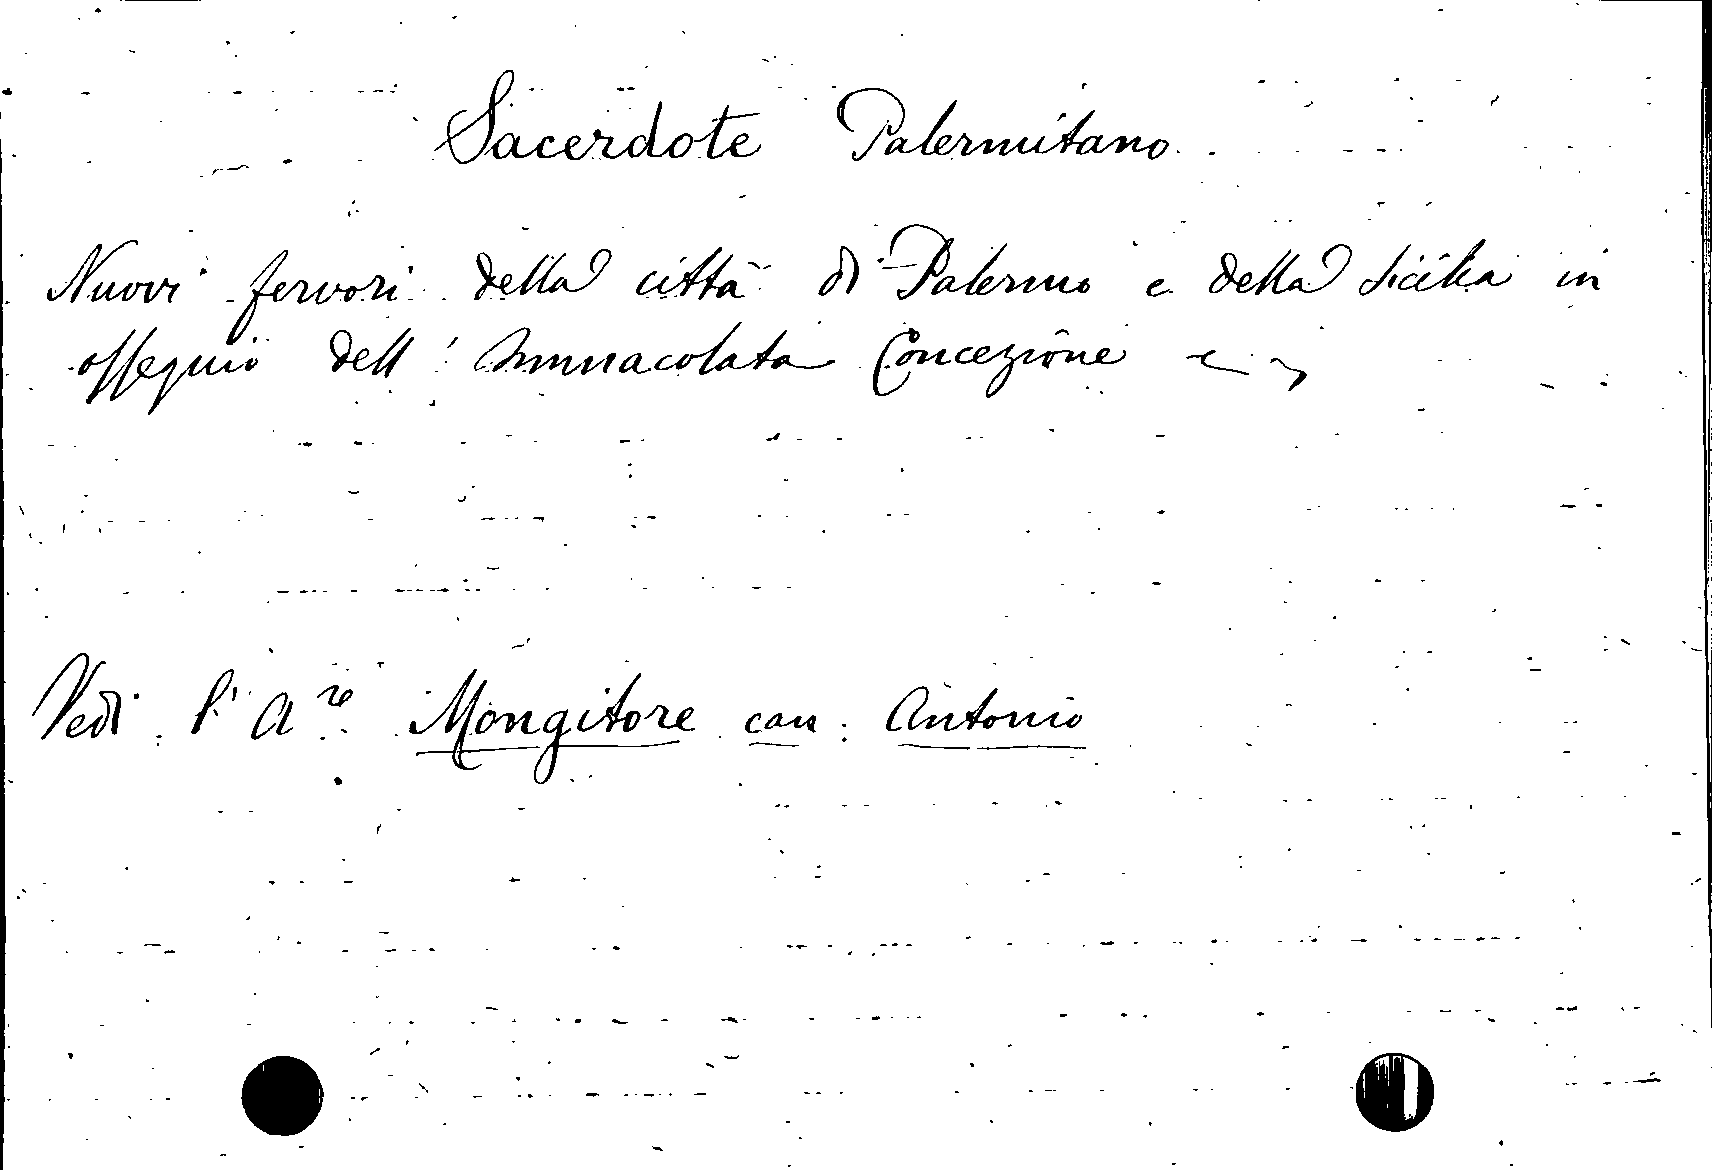 Sacerdote Palermitano
Nuovi fervori della città di Palermo e della Sicilia in
ossequio dell'Immacolata Concezione
Vedi l'A.re Mongitore can: Antonio